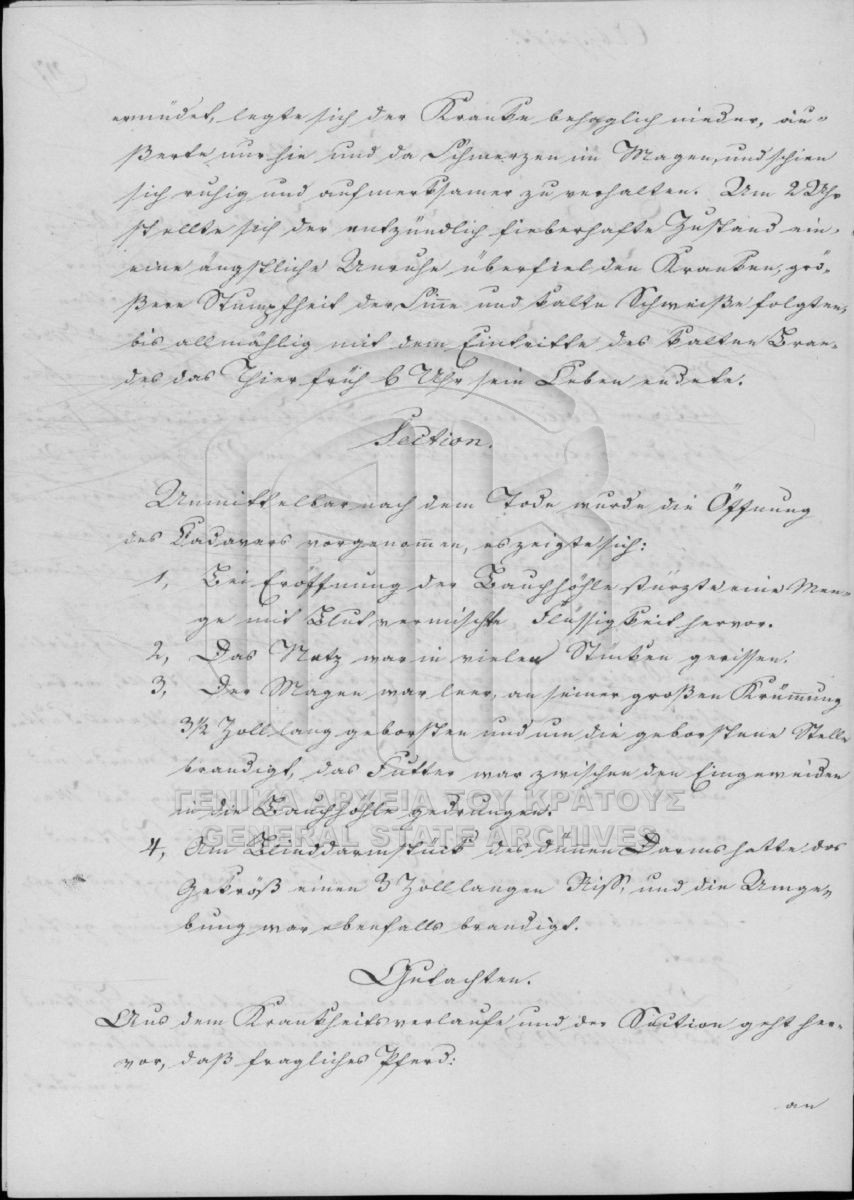 ermüdet, legte sich der Kranke behaglich nieder, äu-
ßerte nur hie und da Schmerzen im Magen, und schien
sich ruhig und aufmerksamer zu verhalten. Um 2 Uhr
stellte sich der entzündlich fieberhafte Zustand ein,
eine ängstliche Unruhe überfiel den Kranken, grö-
ßere Stumpfheit der Sinne und kalte Schweiße folgten,
bis allmählig mit dem Eintritte des kalten Bran-
des das Thier früh 6 Uhr sein Leben endete.
Section.
Unmittelbar nach dem Tode wurde die Öffnung
des Kadavers vorgenommen, es zeigte sich:
1, Bei Eröffnung der Bauchhöhle stürzte eine Men-
ge mit Blut vermischte Flüssigkeit hervor.
2, Das Netz war in vielen Stücken gerissen.
3, Der Magen war leer, an seiner großen Krümmung
3½ Zoll lang geborsten und um die geborstene Stelle
brandigt, das Futter war zwischen den Eingeweiden
in die Bauchhöhle gedrungen.
ΓΕΝΙΚΑ ΑΡΧΕΙΑ ΤΟΥ ΚΡΑΤΟΥΣ
GENERAL STATE ARCHIVES
4, Am Blinddarmstück des dünen Darms hatte das
Gekröß einen 3 Zoll langen Riß, und die Umge-
bung war ebenfalls brandigt.
Gutachten.
Aus dem Krankheitsverlaufe und der Section geht her-
vor, daß fragliches Pferd:
an